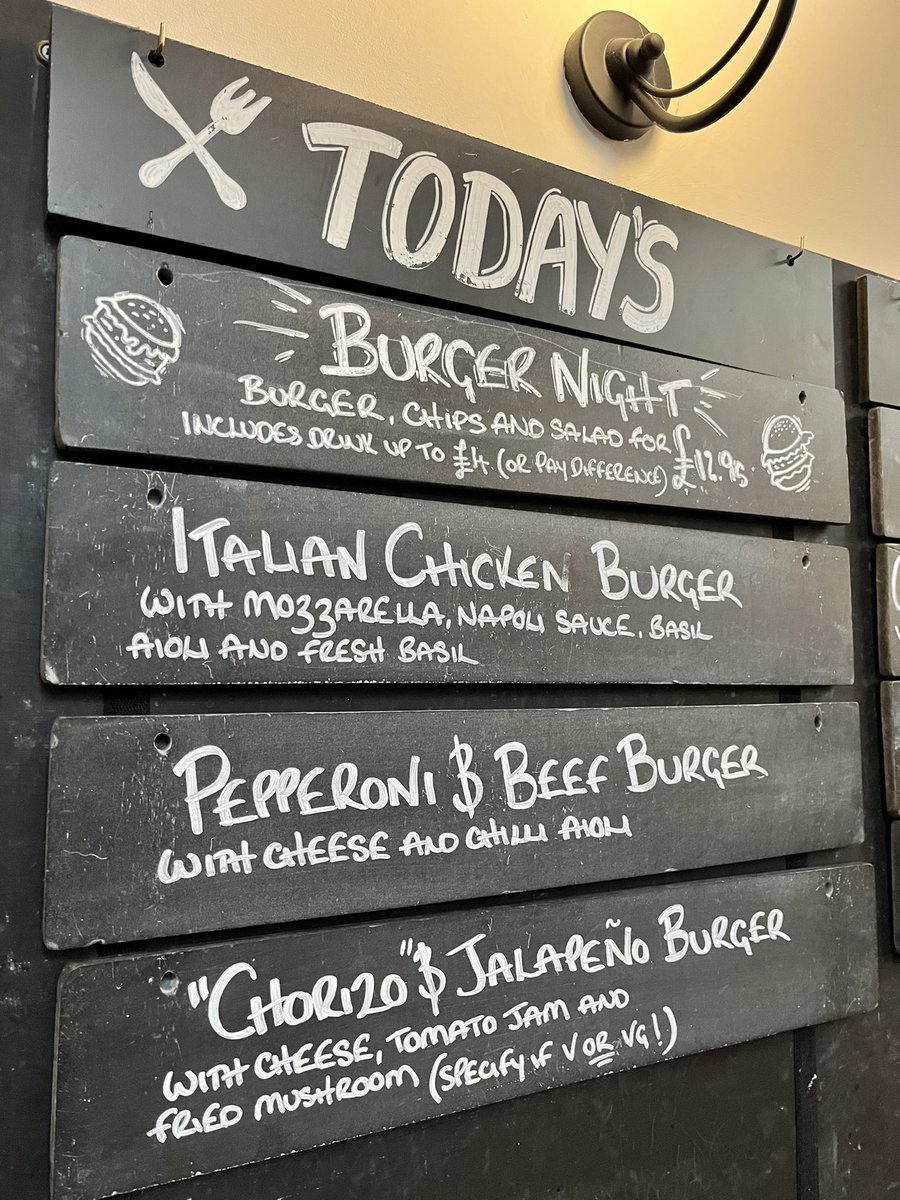 TODAY'S
BURGER NIGHT
BURGER, CHIPS AND SALAD FOR £12.95.
INCLUDES DRINK UP TO £4. (OR PAY DIFFERENCE)
ITALIAN CHICKEN BURGER
WITH MOZZARELLA, NAPOLI SAUCE, BASIL
AIOLI AND FRESH BASIL
PEPPERONI & BEEF BURGER
WITH CHEESE AND CHILLI AIOLI
"CHORIZO" & JALAPEÑO BURGER
WITH CHEESE, TOMATO JAM AND
FRIED MUSHROOM (SPECIFY IF V OR VG!)